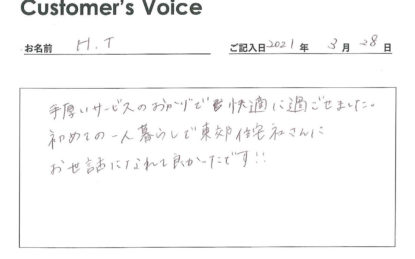 Customer's Voice
お名前 H.T ご記入日 2021 年 3 月 28 日
手厚いサービスのおかげで快適に過ごせました。
初めての一人暮らしで東郊住宅社さんに
お世話になれて良かったです!!